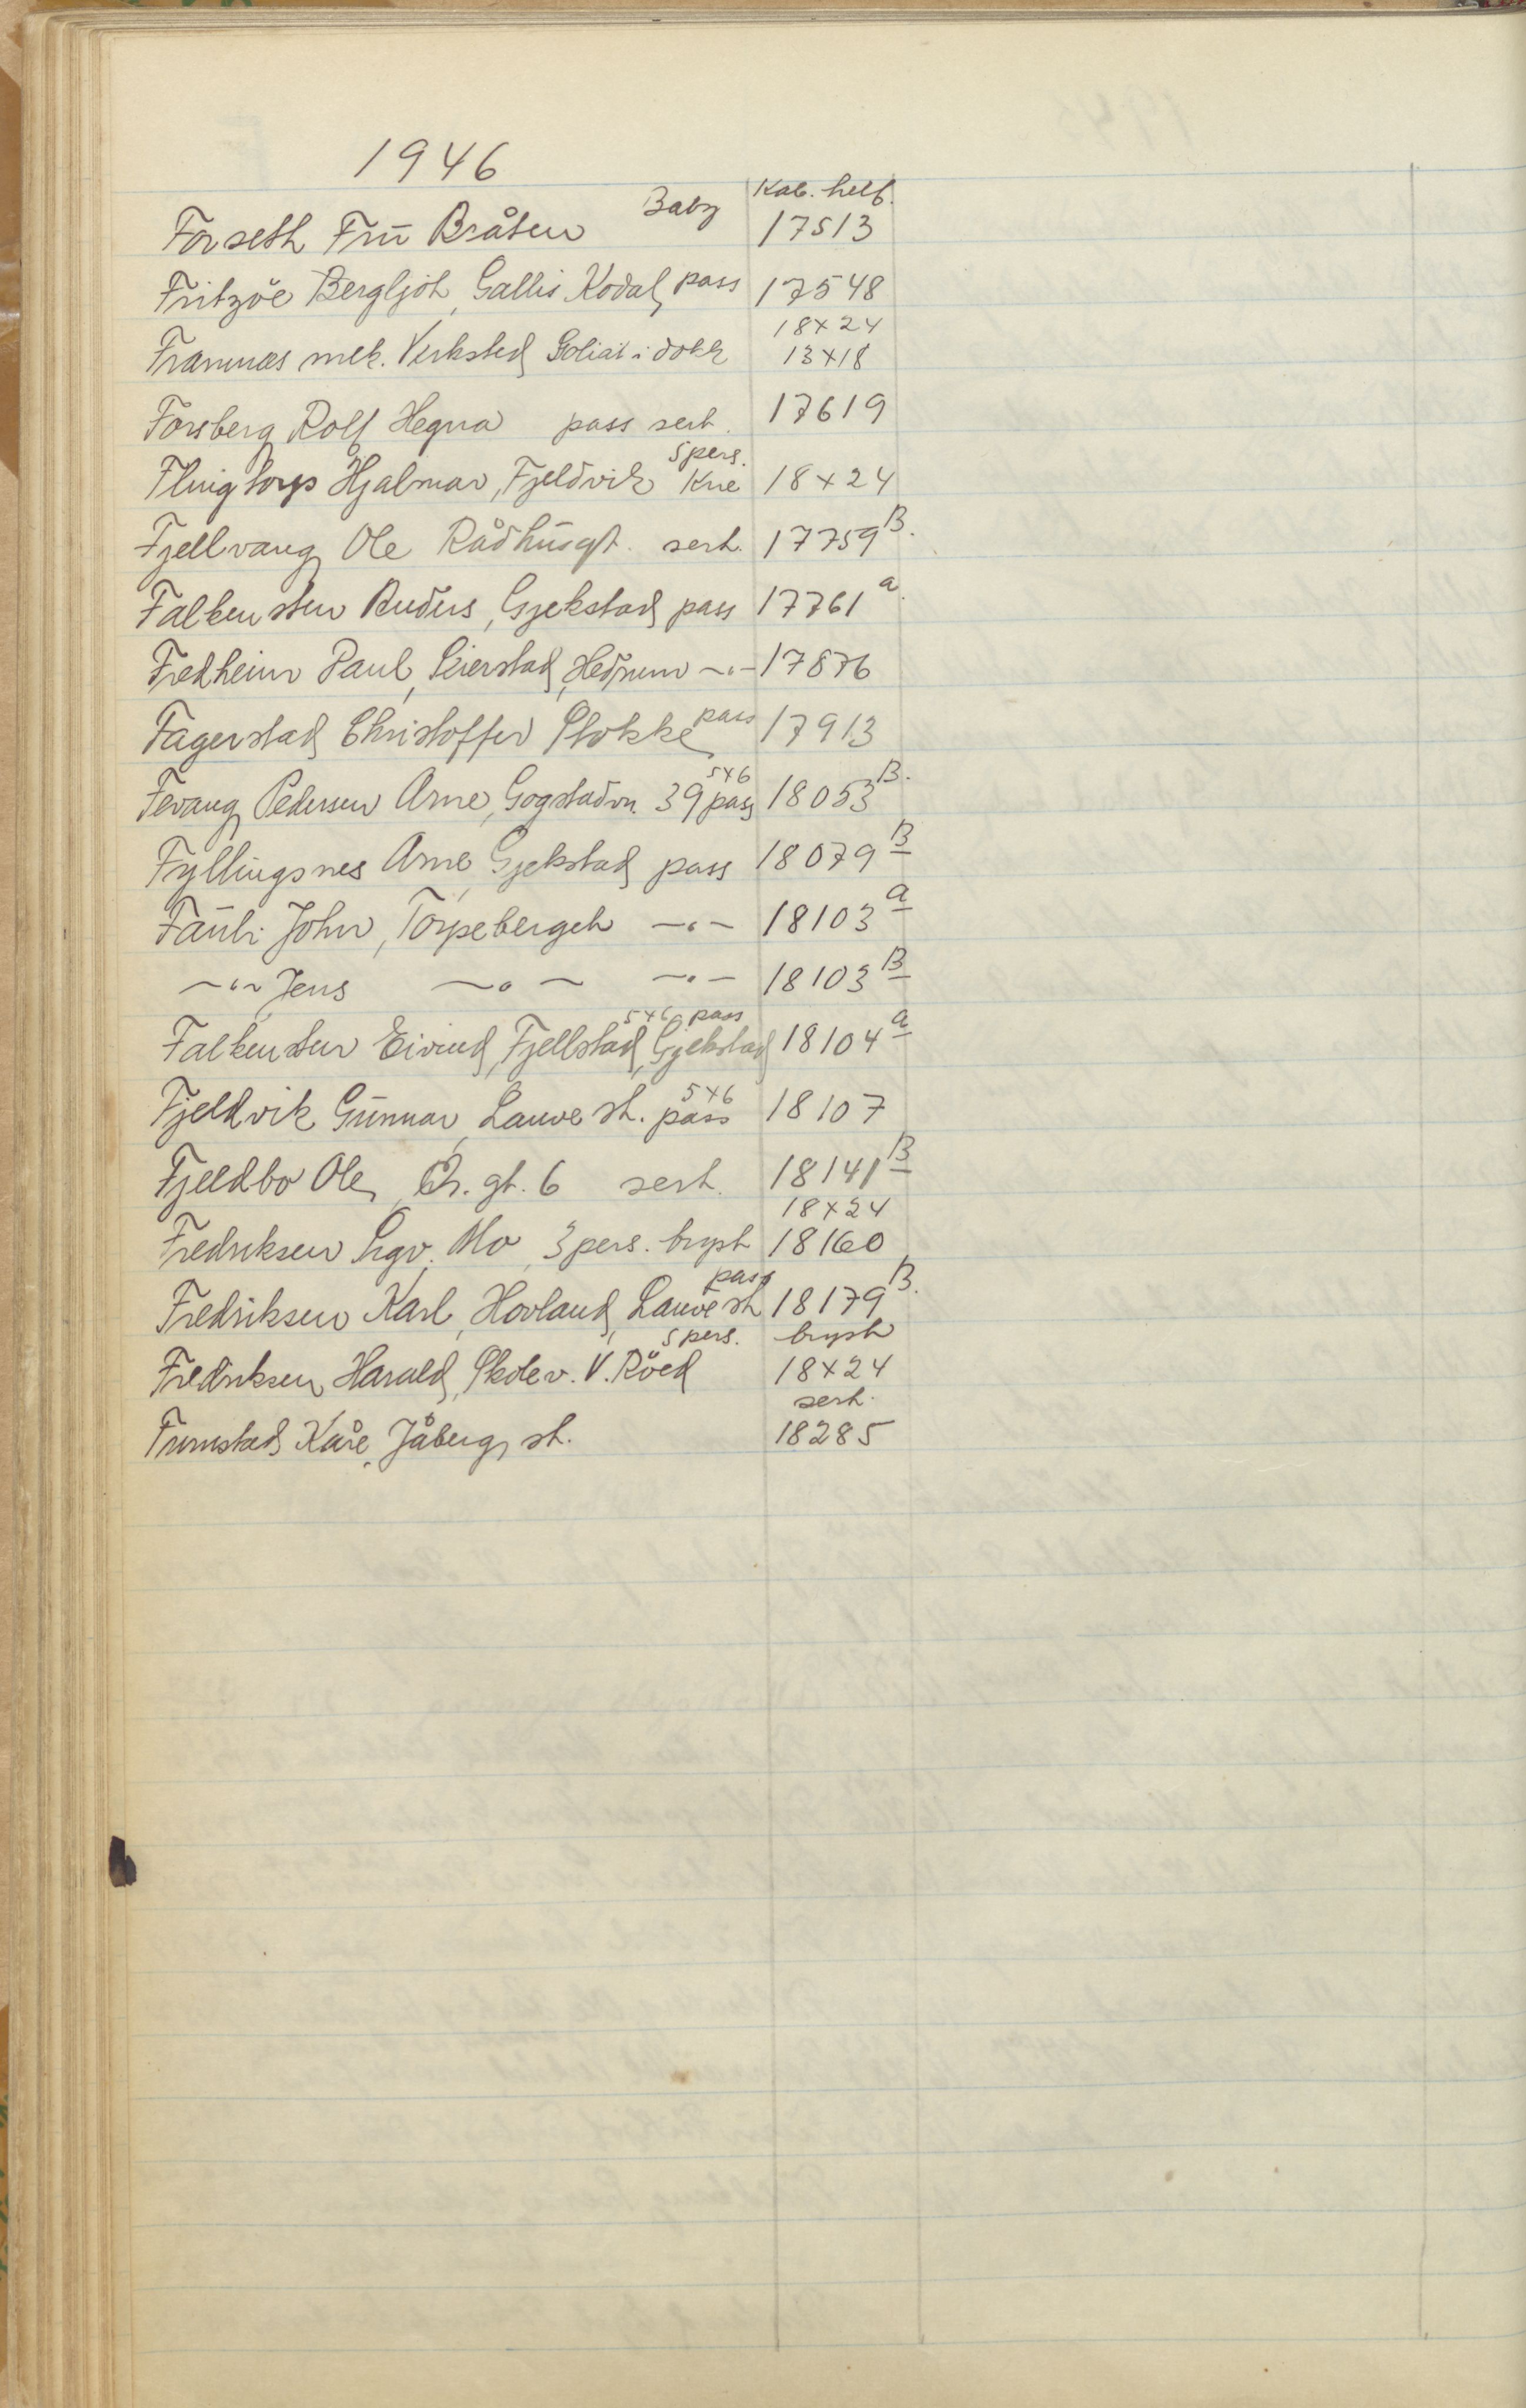 1946
Forseth Frū Bråten Baby Kab. helf. 17513
Fritzöe Bergljot, Gallis Kodal, pass 17548
Framnæs mek. Verksted Goliat i dokk 18x24 13x18
Forsberg Rolf Hegna pass sert. 17619
Flingtorp Hjalmar, Fjeldvik 5 pers. Kne 18x24
Fjellvang Ole Rådhūsgt. sert. 17759 B.
Falkensten, Gjekstad pass 17761 a.
Fredheim Paul, Seierstad, Hedrum -"- 17876
Fagerstad Christoffer Stokke pass 17913
Fevang Pedersen Arne, Gogstadvn. 39 5x6 pass 18053 B.
Fyllingsnes Arne Gjekstad pass 18079 B
Faūli John, Torpeberget -"- 18103 a
-"- Jens -"- -"- 18103 B
Falkensten Eivind, Fjellstad, Gjekstad 5x6 pass 18104 a
Fjeldvik Gūnnar, Lauve st. 5x6 pass 18107
Fjeldbo Ole, gt. 6 sert. 18141 B
Fredriksen Sigv. Mo, 3 pers. bryst 18x24 18160
Fredriksen Karl, Hovland, Lauve st pass 18179 B.
Fredriksen Harald, Skolev. V. Röed 5 pers. bryst 18x24
Kåre, Jåberg st. sert. 18285